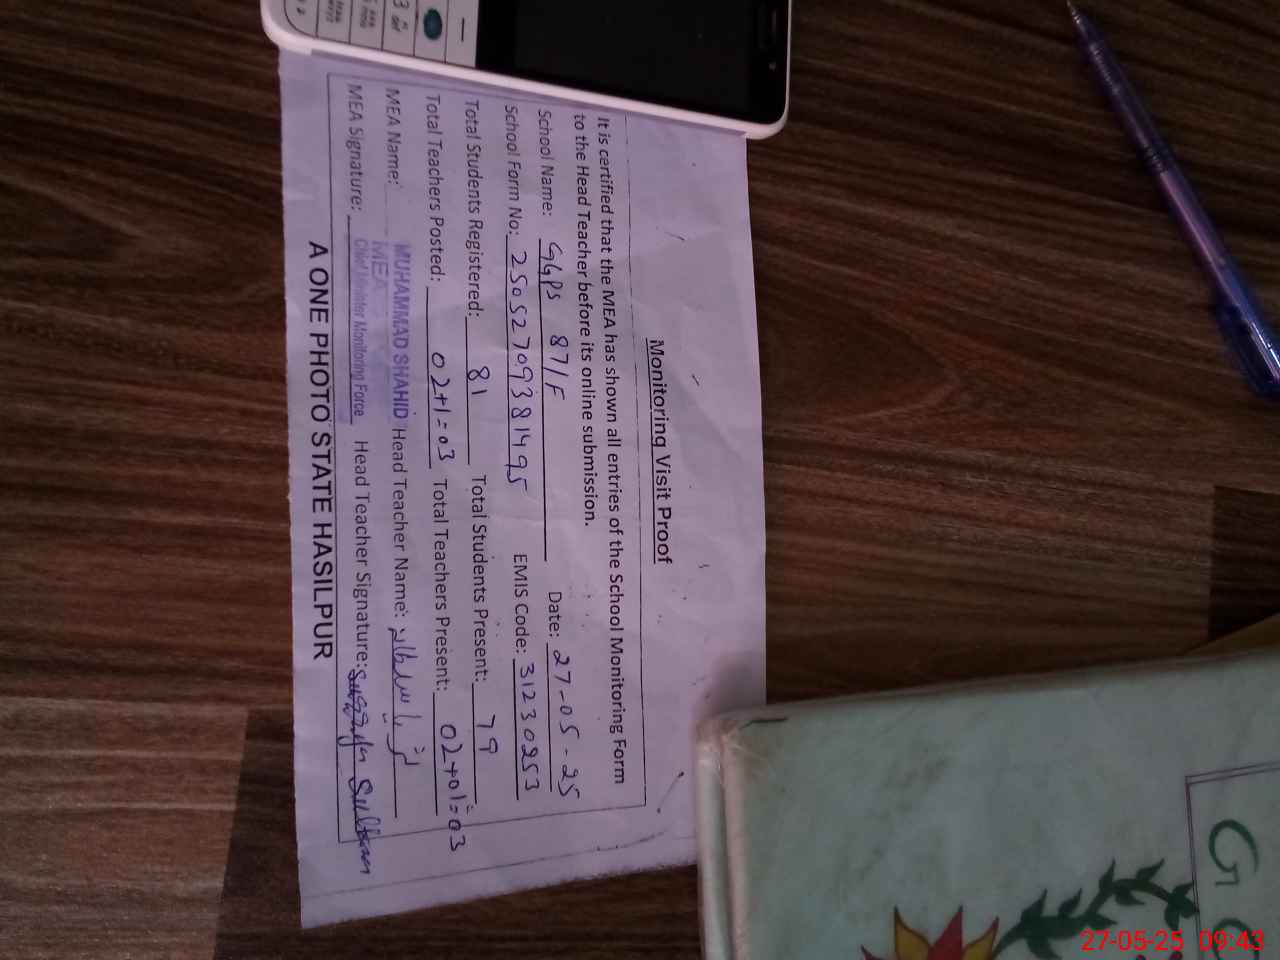 Monitoring Visit Proof
It is certified that the MEA has shown all entries of the School Monitoring Form
to the Head Teacher before its online submission.
School Name: GGPS 87/F Date: 27-05-25
School Form No: 25052709381495 EMIS Code: 31230253
Total Students Registered: 81 Total Students Present: 79
Total Teachers Posted: 02+1=03 Total Teachers Present: 02+01=03
MEA Name: MUHAMMAD SHAHID Head Teacher Name:
MEA
MEA Signature: Chief Minister Monitoring Force Head Teacher Signature: Sultan
A ONE PHOTO STATE HASILPUR
G
27-05-25 09:43